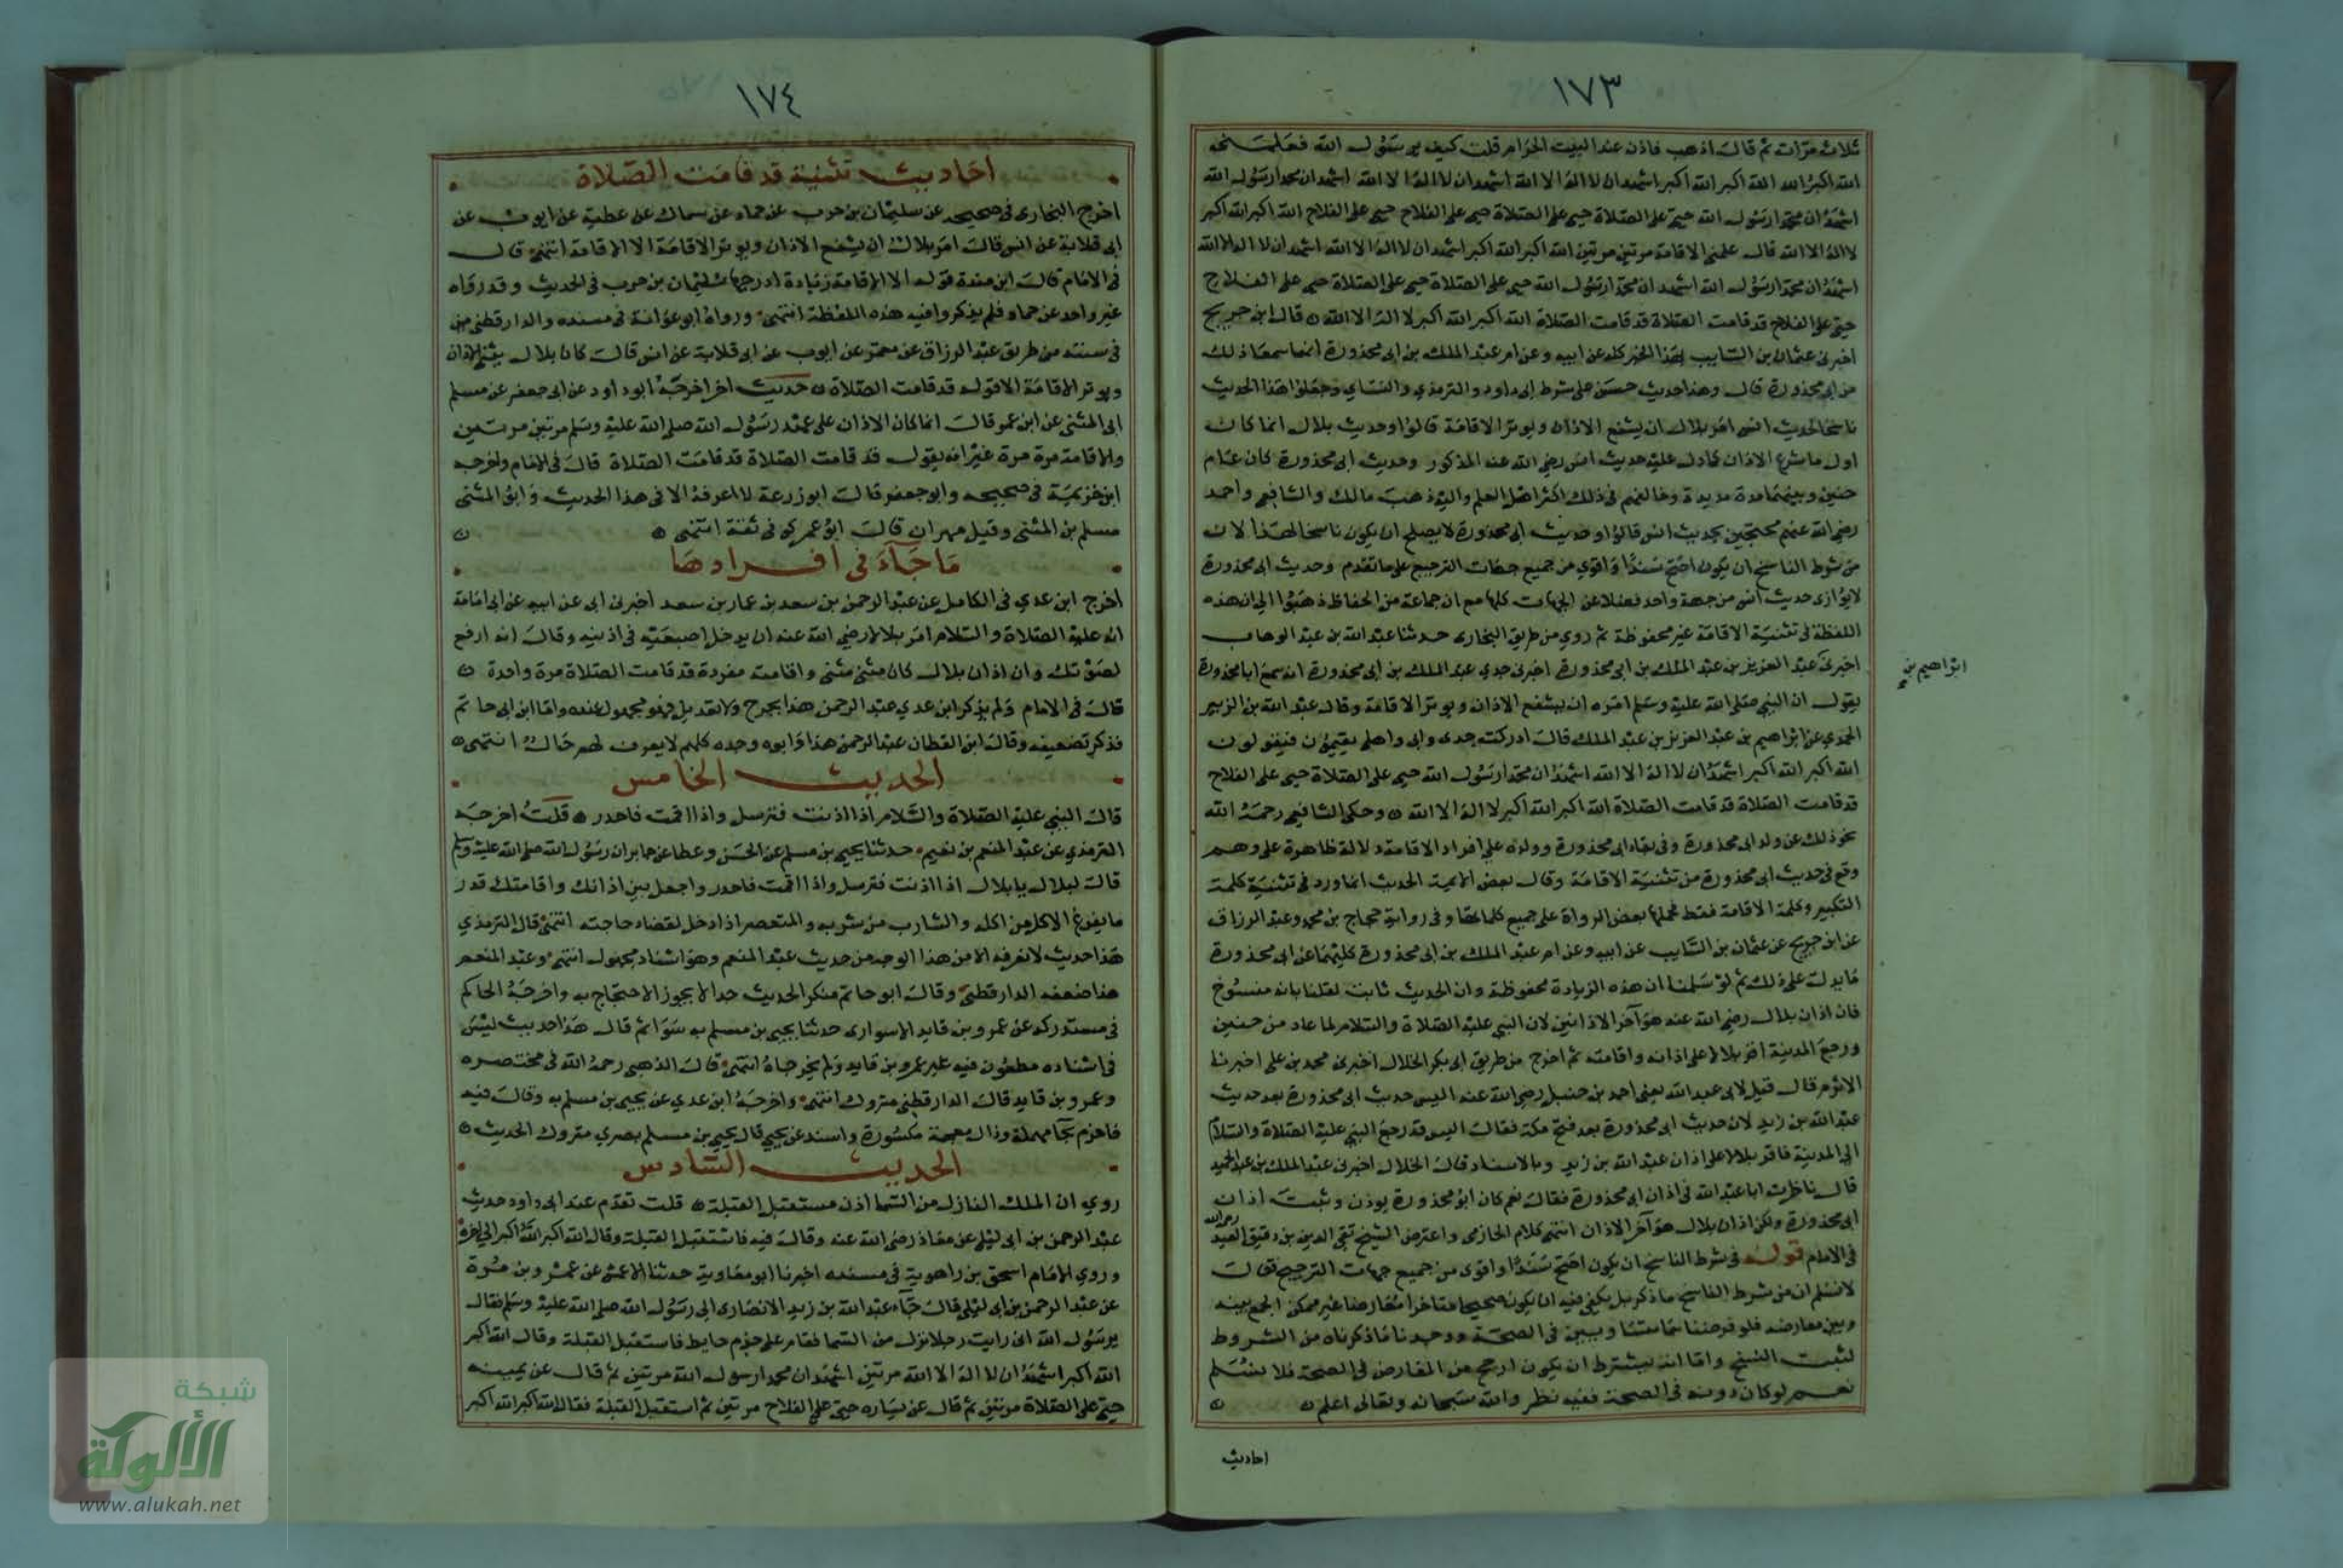 ١٧٣
ثلاث مرات ثم قال اذهب فاذن عند البيت الحرام قلت كيف يرسول الله فعلمنى
الله اكبر الله اكبر الله اكبر الله اكبر اشهد ان لا اله الا الله اشهد ان لا اله الا الله اشهد ان محمدا رسول الله
اشهد ان محمدا رسول الله حي على الصلاة حي على الصلاة حي على الفلاح حي على الفلاح الله اكبر الله اكبر
لا اله الا الله قال علمنى الاقامة مرتين مرتين الله اكبر الله اكبر الله اكبر اشهد ان لا اله الا الله اشهد ان لا اله الا الله
اشهد ان محمدا رسول الله اشهد ان محمدا رسول الله حي على الصلاة حي على الصلاة حي على الفلاح
حي على الفلاح قد قامت الصلاة قد قامت الصلاة الله اكبر الله اكبر لا اله الا الله قال ابن جريج
اخبرنى عثمان بن السايب هذا الخبر كله عن ابيه وعن ام عبد الملك بن ابى محذورة انهما سمعا ذلك
من ابى محذورة قال وهذا حديث حسن على شرط ابى داود والترمذي والنساي وجعلوا هذا الحديث
ناسخا لحديث انس امر بلال ان يشفع الاذان ويوتر الاقامة قالوا وحديث بلال انما كان
اول ما شرع الاذان كما دل عليه حديث انس رضي الله عنه المذكور وحديث ابى محذورة كان عام
حنين وبينهما مدة مديدة وخالفهم فى ذلك اكثر اهل العلم واليه ذهب مالك والشافعي واحمد
رضي الله عنهم محتجين بحديث انس قالوا وحديث ابى محذورة لا يصلح ان يكون ناسخا لهذا لان
من شرط الناسخ ان يكون اصح سندا واقوي من جميع جهات الترجيح على ما تقدم وحديث ابى محذورة
لا يوازى حديث انس من جهة واحد فضلا عن الجهات كلها مع ان جماعة من الحفاظ ذهبوا الى ان هذه
اللفظة فى تثنية الاقامة غير محفوظة ثم روي من طريق البخارى حدثنا عبد الله بن عبد الوهاب
اخبرنى عبد العزيز بن عبد الملك بن ابى محذورة اخبرنى جدي عبد الملك بن ابى محذورة انه سمع ابا محذورة
ابراهيم بن
يقول ان النبي صلى الله عليه وسلم امره ان يشفع الاذان ويوتر الاقامة وقال عبد الله بن الزبير
الحميدي عن ابراهيم بن عبد العزيز بن عبد الملك قال ادركت جدى وابى واهلى يقيمون فيقولون
الله اكبر الله اكبر اشهد ان لا اله الا الله اشهد ان محمدا رسول الله حي على الصلاة حي على الفلاح
قد قامت الصلاة قد قامت الصلاة الله اكبر الله اكبر لا اله الا الله وحكى الشافعي رحمه الله
نحو ذلك عن ولد ابى محذورة وفى بقاء ابى محذورة وولده على افراد الاقامة دلالة ظاهرة على وهم
وقع فى حديث ابى محذورة من تثنية الاقامة وقال بعض الايمة الحديث انما ورد فى تثنية كلمة
التكبير وكلمة الاقامة فقط فحملها بعض الرواة على جميع كلماتها وفى رواية حجاج بن محمد وعبد الرزاق
عن ابن جريج عن عثمان بن السايب عن ابيه وعن ام عبد الملك بن ابى محذورة كليهما عن ابى محذورة
ما يدل على ذلك ثم لو سلمنا ان هذه الزيادة محفوظة وان الحديث ثابت لقلنا بانه منسوخ
فان اذان بلال رضي الله عنه هو آخر الاذانين لان النبي عليه الصلاة والسلام لما عاد من حنين
ورجع المدينة اقر بلالا على اذانه واقامته ثم اخرج من طريق ابى بكر الخلال اخبرنى محمد بن على اخبرنا
الاثرم قال قيل لابى عبد الله يعنى احمد بن حنبل رضي الله عنه اليس حديث ابى محذورة بعد حديث
عبد الله بن زيد لان حديث ابى محذورة بعد فتح مكة فقال اليس قد رجع النبي عليه الصلاة والسلام
الى المدينة فاقر بلالا على اذان عبد الله بن زيد وبالاسناد قال الخلال اخبرنى عبد الملك بن عبد الحميد
قال ناظرت ابا عبد الله فى اذان ابى محذورة فقال نعم كان ابو محذورة يوذن وثبت اذان
ابى محذورة ولكن اذان بلال هو آخر الاذان انتهى كلام الحازمى واعترض الشيخ تقى الدين بن دقيق العيد رحمه الله
فى الامام قوله فى شرط الناسخ ان يكون اصح سندا واقوى من جميع جهات الترجيح فقال
لا نسلم ان من شرط الناسخ ما ذكر بل يكفى فيه ان يكون صحيحا متاخرا معارضا غير ممكن الجمع بينه
وبين معارضه فلو فرضنا متساويين فى الصحة ووجدنا ما ذكرناه من الشروط
لثبت النسخ واما انه يشترط ان يكون ارجح من المعارض فى الصحة فلا نسلم
نعم لو كان دونه فى الصحة ففيه نظر والله سبحانه وتعالى اعلم
احاديث
١٧٤
احاديث تثنية قد قامت الصلاة
اخرج البخارى فى صحيحه عن سليمان بن حرب عن حماد عن سماك عن عطية عن ايوب عن
ابى قلابة عن انس قال امر بلال ان يشفع الاذان ويوتر الاقامة الا الاقامة انتهى قال
فى الامام قال ابن مندة قوله الا الاقامة زيادة ادرجها سليمان بن حرب فى الحديث وقد رواه
غير واحد عن حماد فلم يذكروا فيه هذه اللفظة انتهى ورواه ابو عوانة فى مسنده والدارقطنى من
فى سننه من طريق عبد الرزاق عن معمر عن ايوب عن ابى قلابة عن انس قال كان بلال يثنى الاذان
ويوتر الاقامة الا قوله قد قامت الصلاة حديث اخر اخرجه ابو داود عن ابى جعفر عن مسلم
ابى المثنى عن ابن عمر قال انما كان الاذان على عهد رسول الله صلى الله عليه وسلم مرتين مرتين
والاقامة مرة مرة غير انه يقول قد قامت الصلاة قد قامت الصلاة قال فى الامام واخرجه
ابن خزيمة فى صحيحه وابو جعفر قال ابو زرعة لا اعرفه الا فى هذا الحديث وابو المثنى
مسلم بن المثنى وقيل مهران قال ابو عمر كوفى ثقة انتهى
ما جاء فى افرادها
اخرج ابن عدي فى الكامل عن عبد الرحمن بن سعد بن عمار بن سعد اخبرنى ابى عن ابيه عن ابى امامة
انه عليه الصلاة والسلام امر بلالا رضي الله عنه ان يدخل اصبعيه فى اذنيه وقال انه ارفع
لصوتك وان اذان بلال كان مثنى مثنى واقامته مفردة قد قامت الصلاة مرة واحدة
قال فى الامام ولم يذكر ابن عدي عبد الرحمن هذا بجرح ولا تعديل فهو مجهول عنده واما ابن ابى حاتم
فذكر تضعيفه وقال ابن القطان عبد الرحمن هذا وابوه وجده كلهم لا يعرف لهم حال انتهى
الحديث الخامس
قال النبي عليه الصلاة والسلام اذا اذنت فترسل واذا اقمت فاحدر قلت اخرجه
الترمذي عن عبد المنعم بن نعيم حدثنا يحيى بن مسلم عن الحسن وعطا عن جابر ان رسول الله صلى الله عليه وسلم
قال لبلال يا بلال اذا اذنت فترسل واذا اقمت فاحدر واجعل بين اذانك واقامتك قدر
ما يفرغ الاكل من اكله والشارب من شربه والمتعصر اذا دخل لقضاء حاجته انتهى قال الترمذي
هذا حديث لا نعرفه الا من هذا الوجه من حديث عبد المنعم وهو اسناد مجهول انتهى وعبد المنعم
هذا ضعفه الدارقطنى وقال ابو حاتم منكر الحديث جدا لا يجوز الاحتجاج به واخرجه الحاكم
فى مستدركه عن عمرو بن فايد الاسوارى حدثنا يحيى بن مسلم به سوا ثم قال هذا حديث ليس
فى اسناده مطعون فيه غير عمرو بن فايد ولم يخرجاه انتهى قال الذهبى رحمه الله فى مختصره
وعمرو بن فايد قال الدارقطنى متروك انتهى واخرجه ابن عدي عن يحيى بن مسلم به وقال فيه
فاحذم بحآ مهملة وذال معجمة مكسورة واسند عن يحيي قال يحيى بن مسلم بصري متروك الحديث
الحديث السادس
روي ان الملك النازل من السما اذن مستقبل القبلة قلت تقدم عند ابى داود حديث
عبد الرحمن بن ابى ليلى عن معاذ رضى الله عنه وقال فيه فاستقبل القبلة وقال الله اكبر الله اكبر الى اخره
وروي الامام اسحق بن راهوية فى مسنده اخبرنا ابو معاوية حدثنا الاعمش عن عمرو بن مرة
عن عبد الرحمن بن ابى ليلى قال جآء عبد الله بن زيد الانصارى الى رسول الله صلى الله عليه وسلم فقال
يرسول الله انى رايت رجلا نزل من السما فقام على جذم حايط فاستقبل القبلة وقال الله اكبر
الله اكبر اشهد ان لا اله الا الله مرتين اشهد ان محمدا رسول الله مرتين ثم قال عن يمينه
حي على الصلاة مرتين ثم قال عن يساره حي على الفلاح مرتين ثم استقبل القبلة فقال الله اكبر الله اكبر
شبكة
الألوكة
www.alukah.net